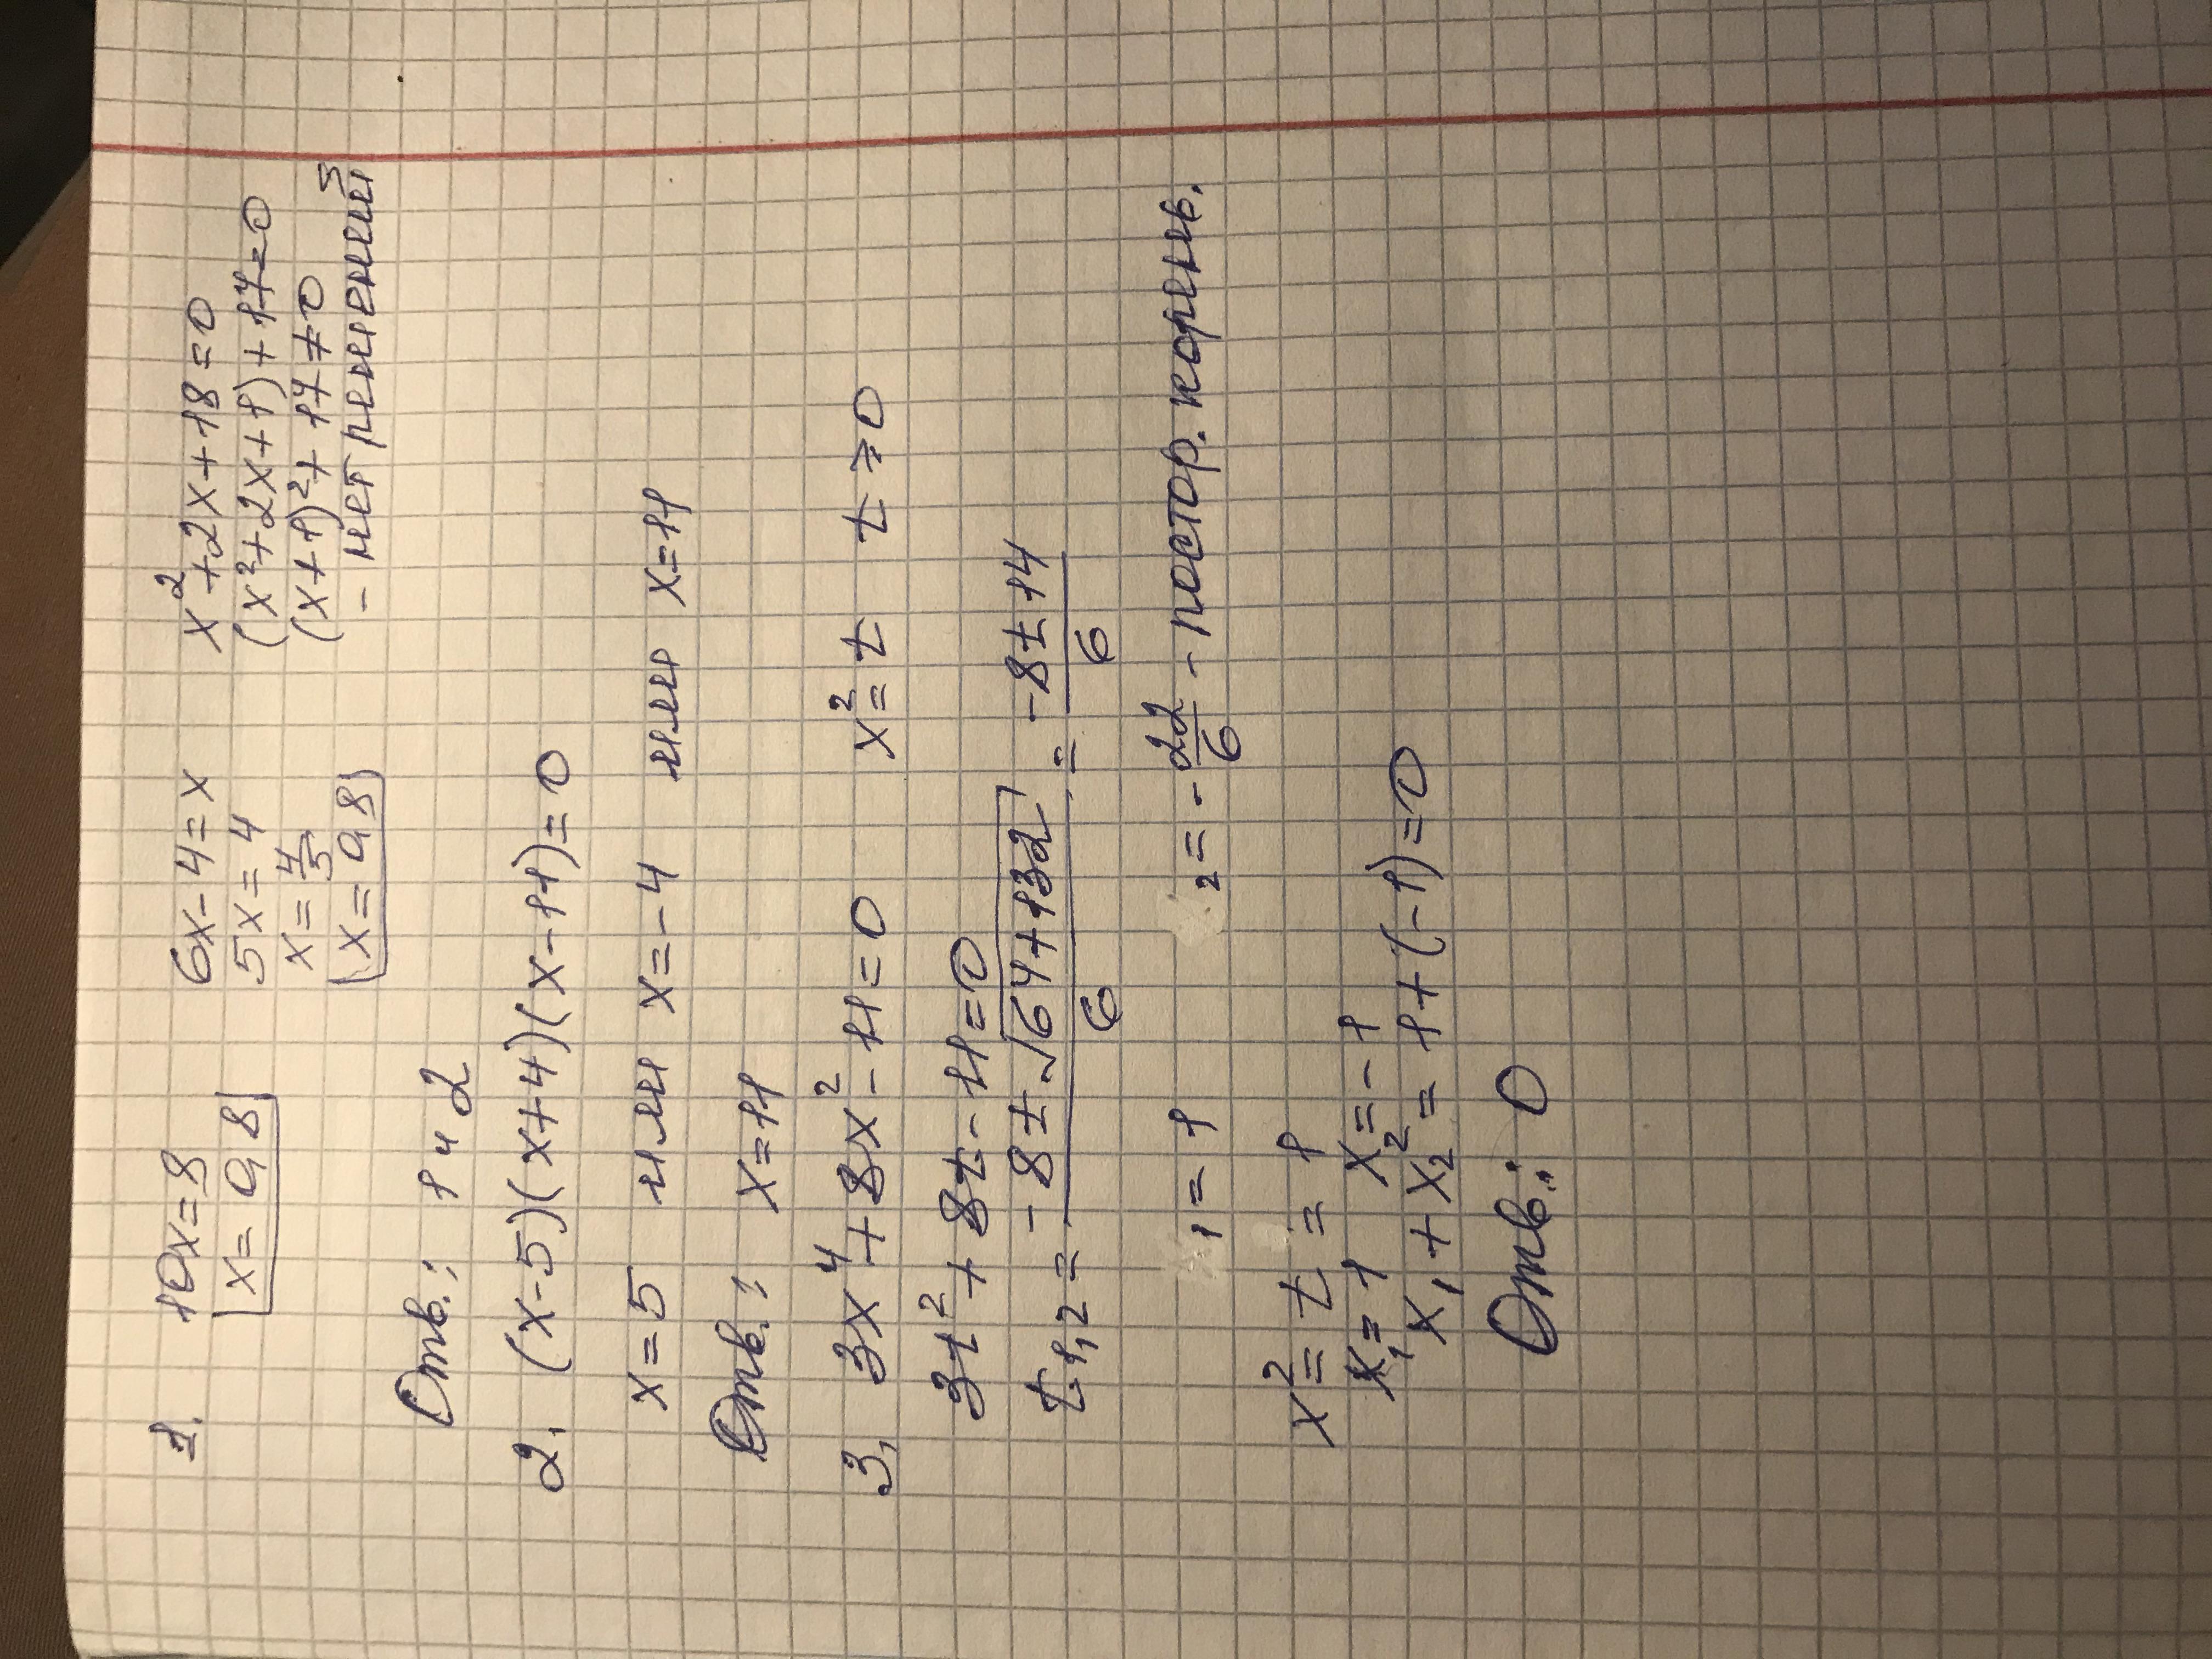 1. 10x=8 6x-4=x x²+2x+18=0
x=0,8 5x=4 (x²+2x+1)+17=0
x=4/5 (x+1)²+17≠0
x=0,8 - нет решений
Отв.: 1 и 2
2. (x-5)(x+4)(x-11)=0
x=5 или x=-4 или x=11
Отв.: x=11
3. 3x⁴+8x²-11=0 x²=t t⩾0
3t²+8t-11=0
t₁,₂ = (-8±√(64+132))/6 = (-8±14)/6
₁=1 ₂=-22/6 - постор. корень.
x²=t=1
x₁=1 x₂=-1
x₁+x₂=1+(-1)=0
Отв.: 0